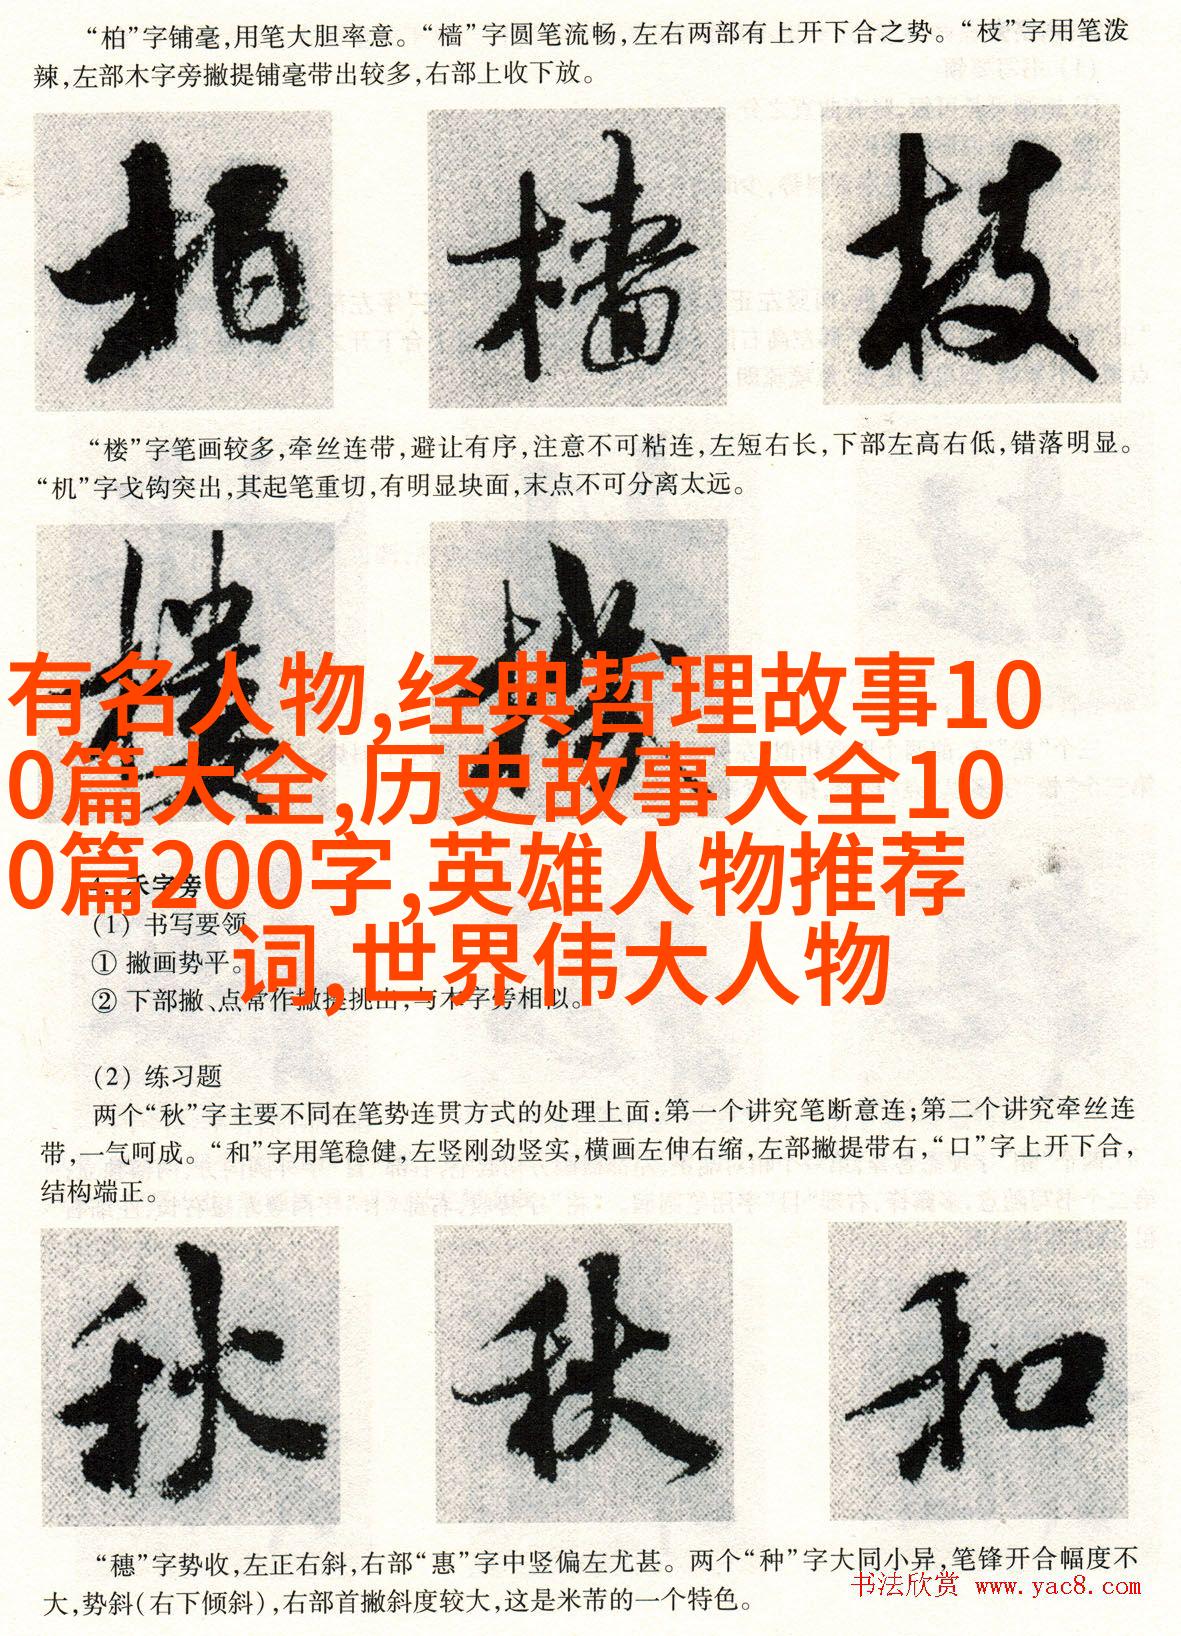 “柏”字铺毫,用笔大胆率意。“樯”字圆笔流畅,左右两部有上开下合之势。“枝”字用笔泼
辣,左部木字旁撇提铺毫带出较多,右部上收下放。
柏 樯 枝
“楼”字笔画较多,牵丝连带,避让有序,注意不可粘连,左短右长,下部左高右低,错落明显。
“机”字戈钩突出,其起笔重切,有明显块面,末点不可分离太远。
楼 機
有名人物,经典哲理故事10
0篇大全,历史故事大全10
0篇200字,英雄人物推荐
词,世界伟大人物
禾字旁
(1) 书写要领
① 撇画势平。
② 下部撇、点常作撇提挑出,与木字旁相似。
(2) 练习题
两个“秋”字主要不同在笔势连贯方式的处理上面:第一个讲究笔断意连;第二个讲究牵丝连
带,一气呵成。“和”字用笔稳健,左竖刚劲竖实,横画左伸右缩,左部撇提带右,“口”字上开下合,
结构端正。
秋 秋 和
“穗”字势收,左正右斜,右部“惠”字中竖偏左尤甚。两个“种”字大同小异,笔锋开合幅度不
大,势斜(右下倾斜),右部首撇斜度较大,这是米芾的一个特色。
书法欣赏 www.yac8.com